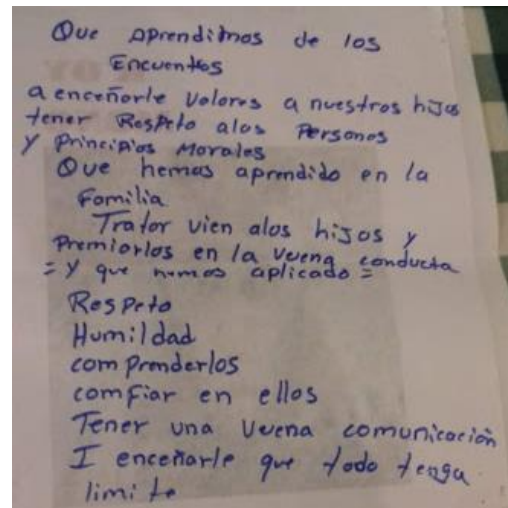 Que aprendimos de los
Encuentos
a enceñorle valores a nuestros hijos
tener Respeto alas Personas
y principios Morales
Que hemos aprendido en la
Familia
Tratar vien alos hijos y
Premiarlos en la vuena conducta
= y que hemos aplicado =
Respeto
Humildad
comprenderlos
comfiar en ellos
Tener una vuena comunicación
I enceñarle que todo tenga
limite